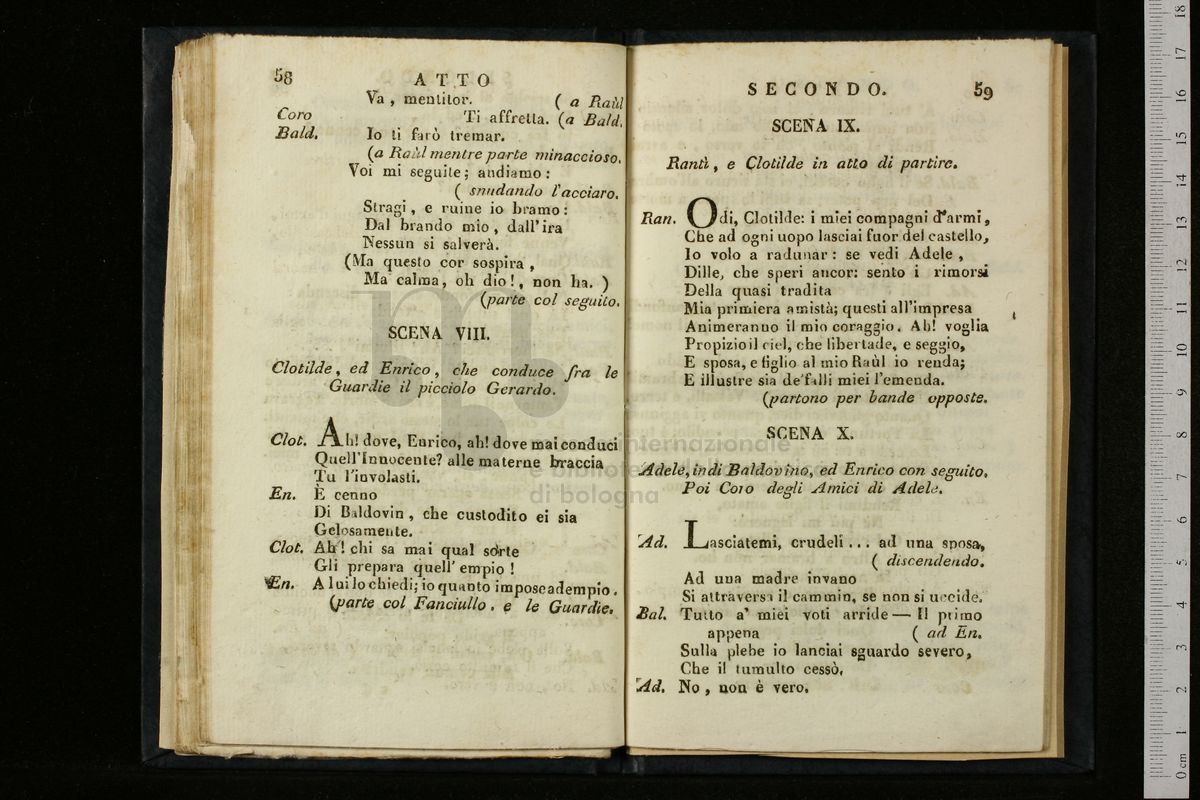 58
ATTO
Va, mentitor. ( a Raùl
Coro Ti affretta. (a Bald.
Bald. Io ti farò tremar.
(a Raùl mentre parte minaccioso.
Voi mi seguite; andiamo:
( snudando l'acciaro.
Stragi, e ruine io bramo:
Dal brando mio, dall'ira
Nessun si salverà.
(Ma questo cor sospira,
Ma calma, oh dio!, non ha. )
(parte col seguito.
SCENA VIII.
Clotilde, ed Enrico, che conduce fra le
Guardie il picciolo Gerardo.
Clot. Ah! dove, Enrico, ah! dove mai conduci
Quell'Innocente? alle materne braccia
Tu l'involasti.
En. È cenno
Di Baldovin, che custodito ei sia
Gelosamente.
Clot. Ah! chi sa mai qual sorte
Gli prepara quell'empio!
En. A lui lo chiedi; io quanto impose adempio.
(parte col Fanciullo, e le Guardie.
SECONDO. 59
SCENA IX.
Rantì, e Clotilde in atto di partire.
Ran. Odi, Clotilde: i miei compagni d'armi,
Che ad ogni uopo lasciai fuor del castello,
Io volo a radunar: se vedi Adele,
Dille, che speri ancor: sento i rimorsi
Della quasi tradita
Mia primiera amistà; questi all'impresa
Animeranno il mio coraggio. Ah! voglia
Propizio il ciel, che libertade, e seggio,
E sposa, e figlio al mio Raùl io renda;
E illustre sia de'falli miei l'emenda.
(partono per bande opposte.
SCENA X.
Adele, indi Baldovino, ed Enrico con seguito,
Poi Coro degli Amici di Adele.
Ad. Lasciatemi, crudeli... ad una sposa,
( discendendo.
Ad una madre invano
Si attraversa il cammin, se non si uccide.
Bal. Tutto a' miei voti arride — Il primo
appena ( ad En.
Sulla plebe io lanciai sguardo severo,
Che il tumulto cessò.
Ad. No, non è vero.
internazionale
e biblioteca
di bologna
0 cm 1 2 3 4 5 6 7 8 9 10 11 12 13 14 15 16 17 18